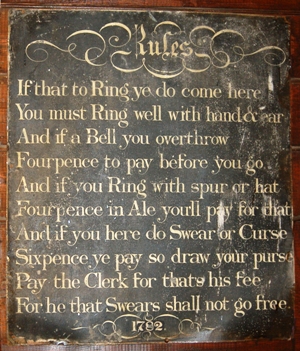 Rules
If that to Ring ye do come here
You must Ring well with hand & ear
And if a Bell you overthrow
Fourpence to pay before you go
And if you Ring with spur or hat
Fourpence in Ale you'll pay for that
And if you here do Swear or Curse
Sixpence ye pay so draw your purse
Pay the Clerk for thats his fee
For he that Swears shall not go free
1782